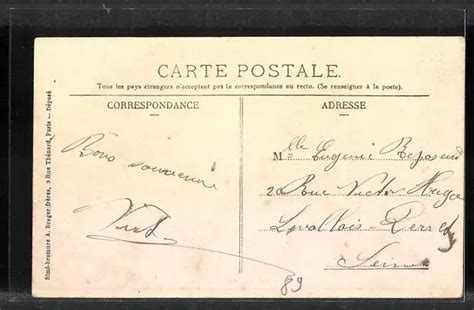 CARTE POSTALE.
Tous les pays étrangers n'acceptent pas la correspondance au recto. (Se renseigner à la poste).
CORRESPONDANCE
ADRESSE
Simi-bromure A. Breger frères, 9 Rue Thénard, Paris — Déposé
Bons souvenirs
Mlle Eugenie
Rue Victor Hugo
Levallois-Perret
Seine
89